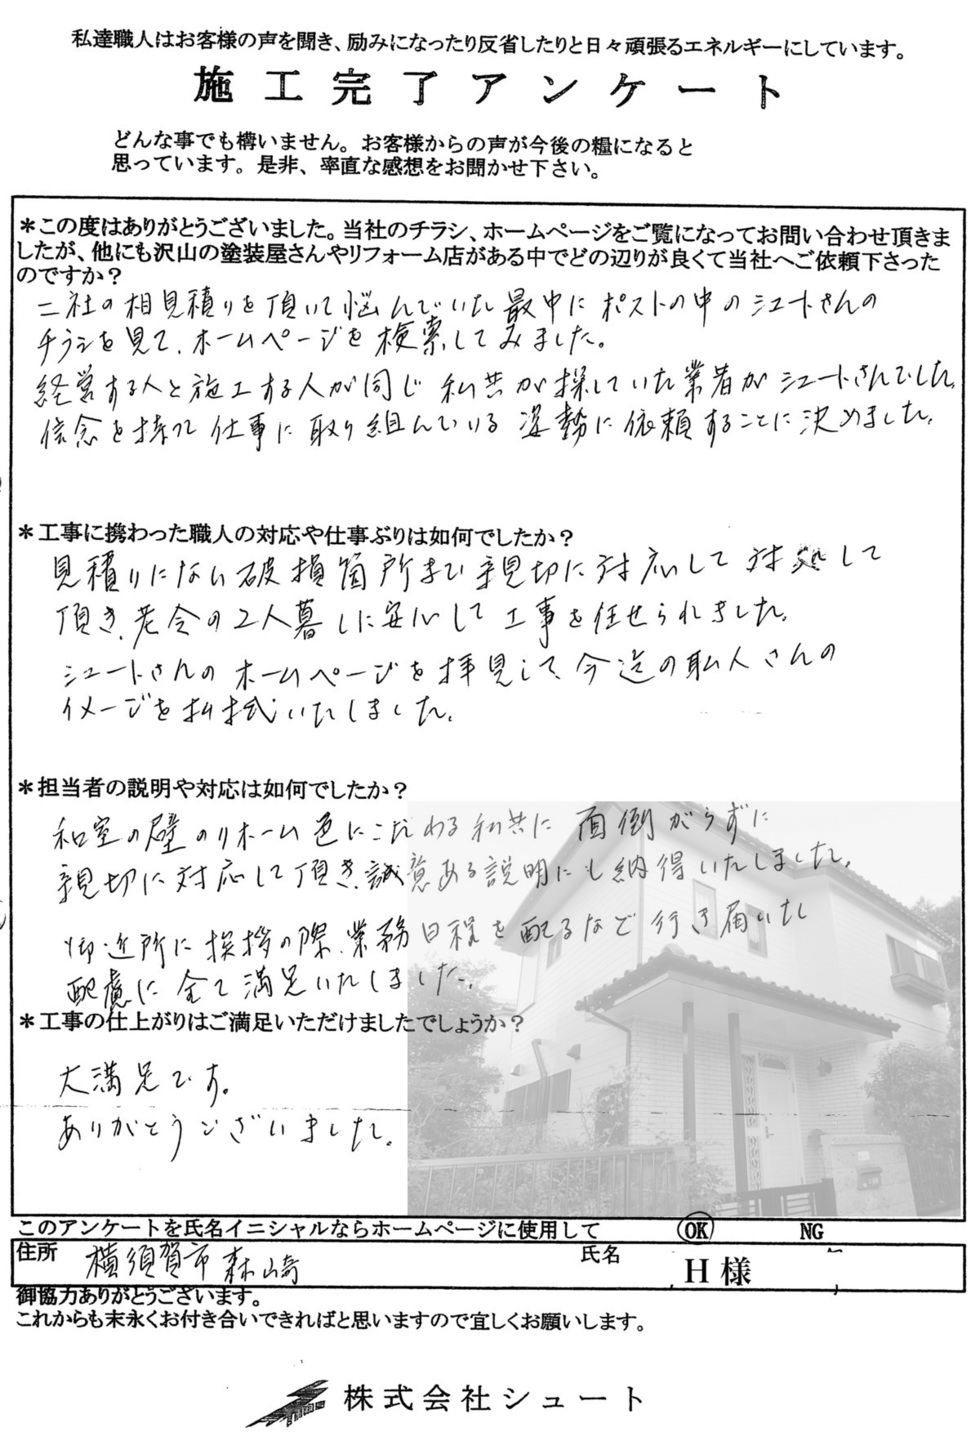 私達職人はお客様の声を聞き、励みになったり反省したりと日々頑張るエネルギーにしています。
施工完了アンケート
どんな事でも構いません。お客様からの声が今後の糧になると
思っています。是非、率直な感想をお聞かせ下さい。
＊この度はありがとうございました。当社のチラシ、ホームページをご覧になってお問い合わせ頂きま
したが、他にも沢山の塗装屋さんやリフォーム店がある中でどの辺りが良くて当社へご依頼下さった
のですか？
二社の相見積りを頂いて悩んでいた最中にポストの中のシュートさんの
チラシを見て、ホームページを検索してみました。
経営する人と施工する人が同じ私共が探していた業者がシュートさんでした。
信念を持って仕事に取り組んでいる姿勢に依頼することに決めました。
＊工事に携わった職人の対応や仕事ぶりは如何でしたか？
見積りにない破損箇所まで親切に対応して対処して
頂き、老令の2人暮しに安心して工事を任せられました。
シュートさんのホームページを拝見して今迄の職人さんの
イメージを払拭いたしました。
＊担当者の説明や対応は如何でしたか？
和室の壁のリホーム色にこだわる私共に面倒がらずに
親切に対応して頂き、誠意ある説明にも納得いたしました。
御近所に挨拶の際、業務日程を配るなど行き届いた
配慮に全て満足いたしました。
＊工事の仕上がりはご満足いただけましたでしょうか？
大満足です。
ありがとうございました。
このアンケートを氏名イニシャルならホームページに使用して OK NG
住所 横須賀市森崎 氏名 H様
御協力ありがとうございます。
これからも末永くお付き合いできればと思いますので宜しくお願いします。
株式会社シュート